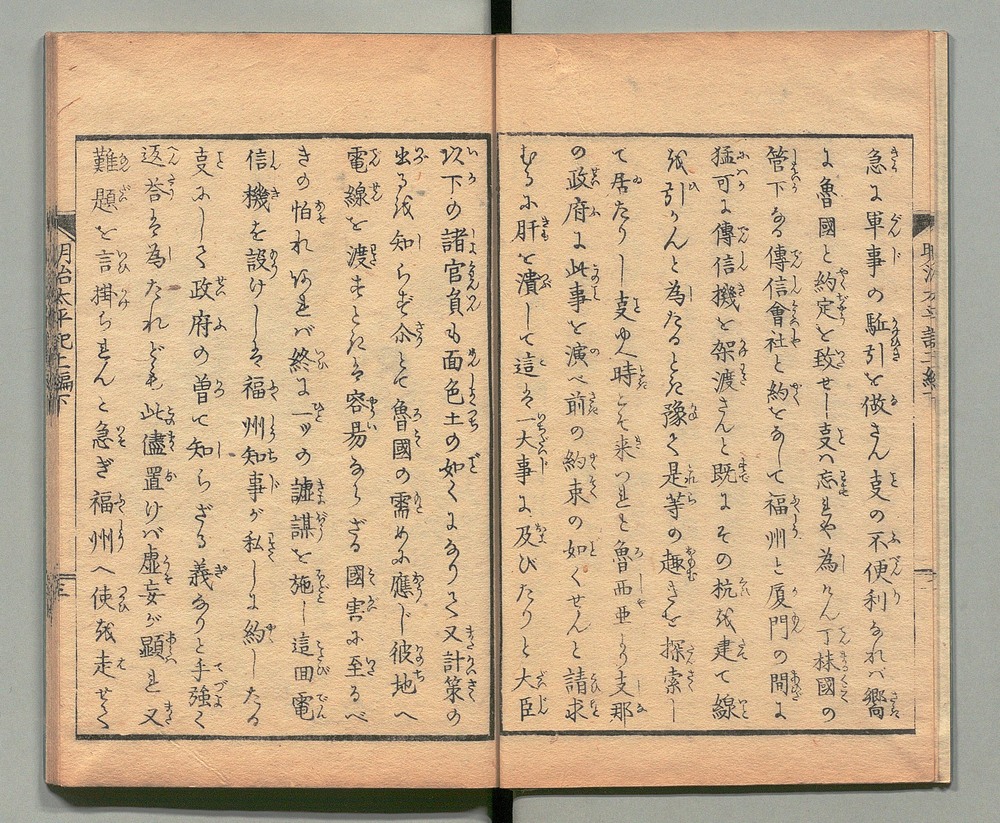 急に軍事の駈引を做さん支の不便利なれバ嚮
に魯國と約定を致せし支ハ忘れや為けん丁抹國の
管下なる傳信會社と約をなして福州と厦門の間に
猛可に傳信機を架渡さんと既にその杭を建て線
を引かんと為たるとき豫て是等の趣きを探索し
て居たりし支ゆへ時こそ来つれと魯西亜より支那
の政府に此事を演べ前の約束の如くせんと請求
むるに肝を潰して這ハ一大事に及びたりと大臣
以下の諸官負も面色土の如くになりて又計策の
出るを知らず尒とて魯國の需めに應じ彼地へ
電線を渡すときハ容易ならざる國害に至るべ
きの怕れあれバ終に一ツの謔謀を施し這回電
信機を設けしハ福州知事が私しに約したる
支にして政府の曽て知らざる義なりと手強く
返荅ハ為たれども此儘置けバ虚妄が顕れ又
難題を言掛られんと急ぎ福州へ使を走せて
明治太平記十二編下